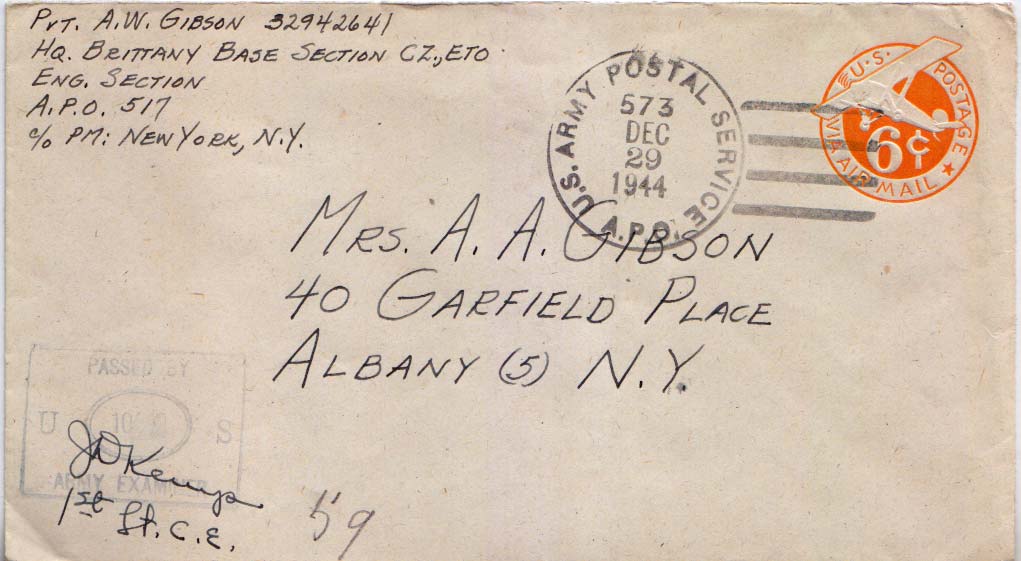 PVT. A.W. GIBSON 32942641
HQ. BRITTANY BASE SECTION CZ., ETO
ENG. SECTION
A.P.O. 517
c/o PM: NEW YORK, N.Y.
U.S. ARMY POSTAL SERVICE
573
DEC
29
1944
A.P.O.
U.S. POSTAGE
6¢
VIA AIR MAIL
MRS. A. A. GIBSON
40 GARFIELD PLACE
ALBANY (5) N.Y.
PASSED BY
U S
ARMY EXAMINER
JD Kemp
1st Lt. C.E.
59